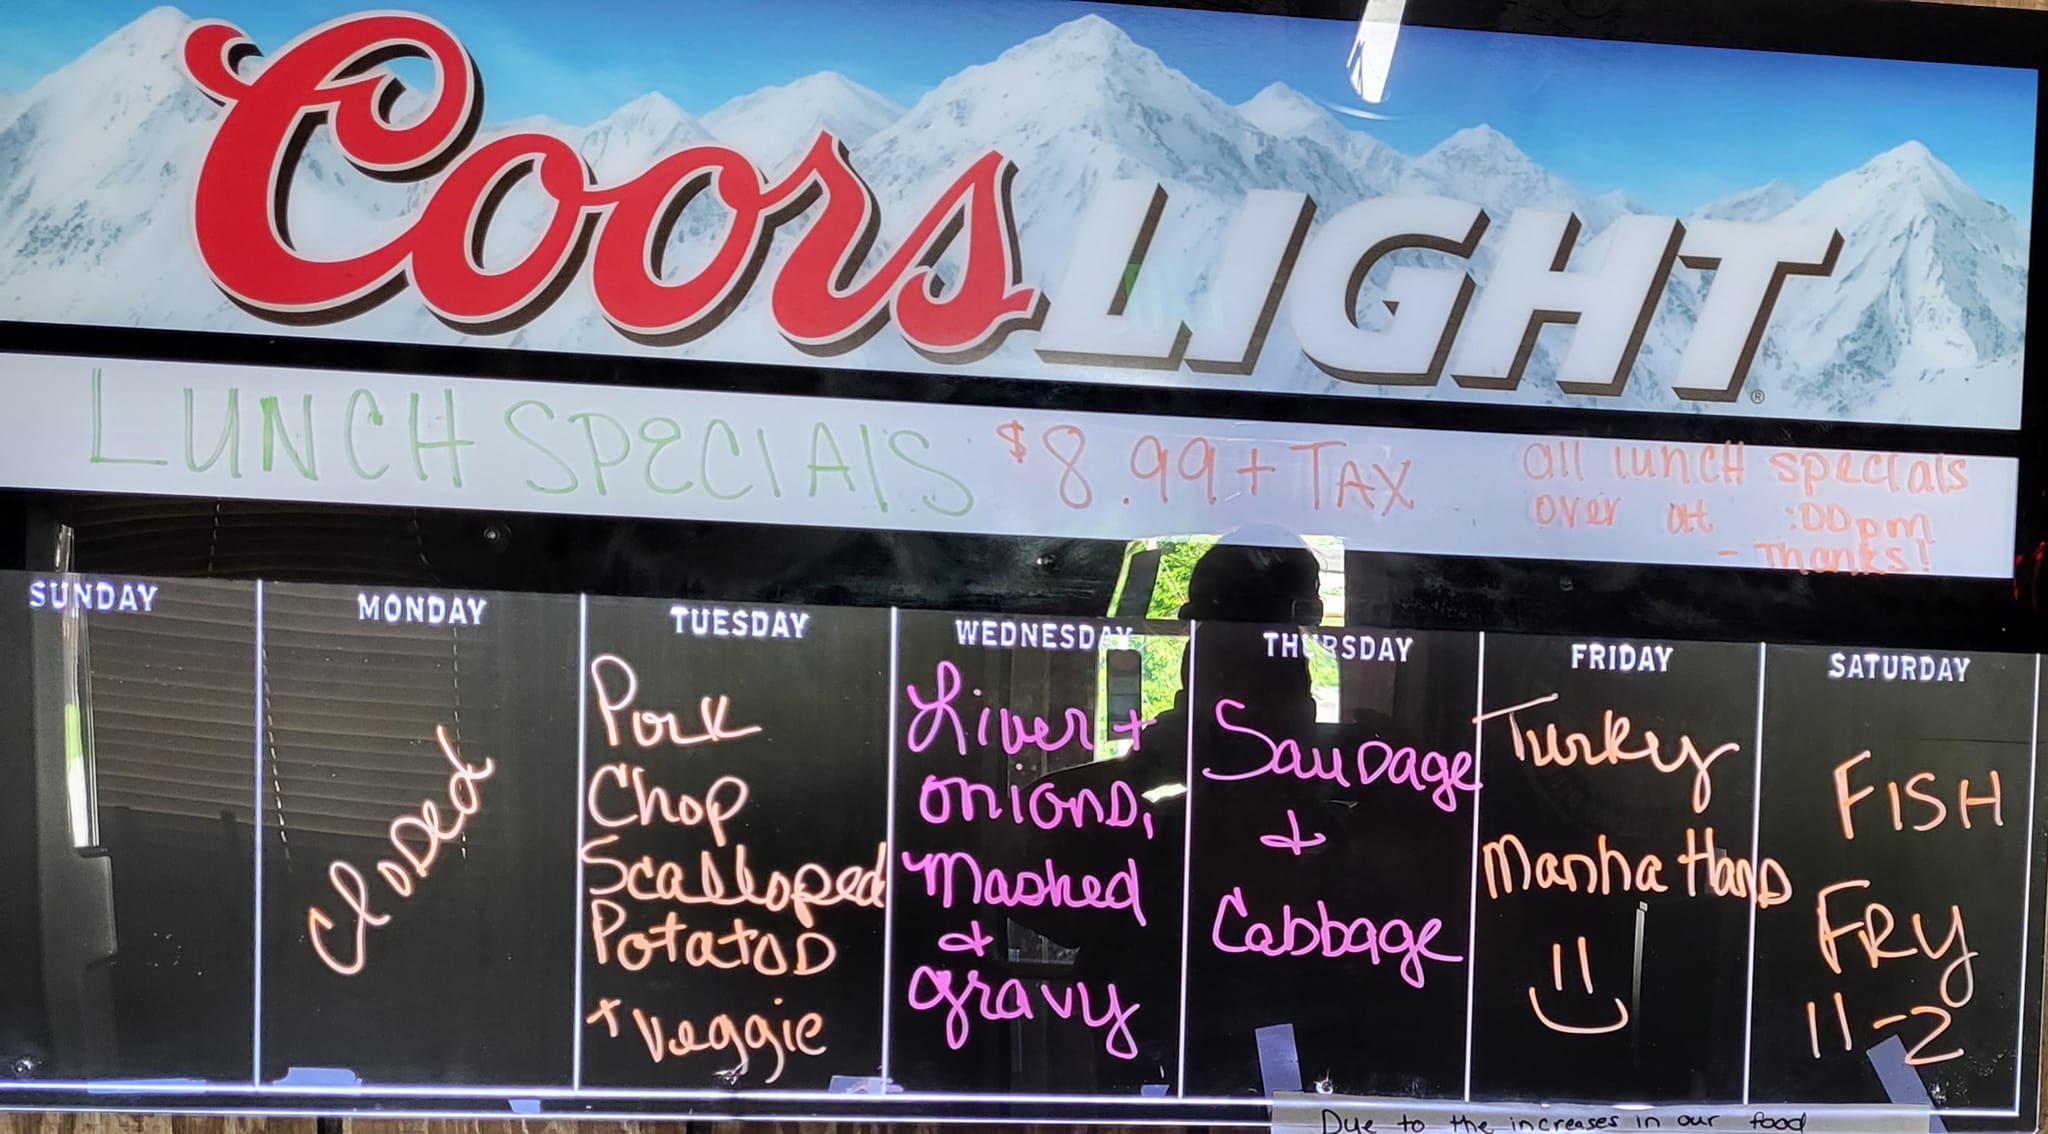 Coors LIGHT
LUNCH SPECIAlS $8.99 + TAX
all lunch specials
over at :00pm
- Thanks!
SUNDAY
MONDAY
Closed
TUESDAY
Pork
Chop
Scalloped
Potatos
+ Veggie
WEDNESDAY
Liver +
onions,
Mashed
+
gravy
THURSDAY
Sausage
+
Cabbage
FRIDAY
Turky
Manhattans
SATURDAY
FISH
FRY
11-2
Due to the increases in our food